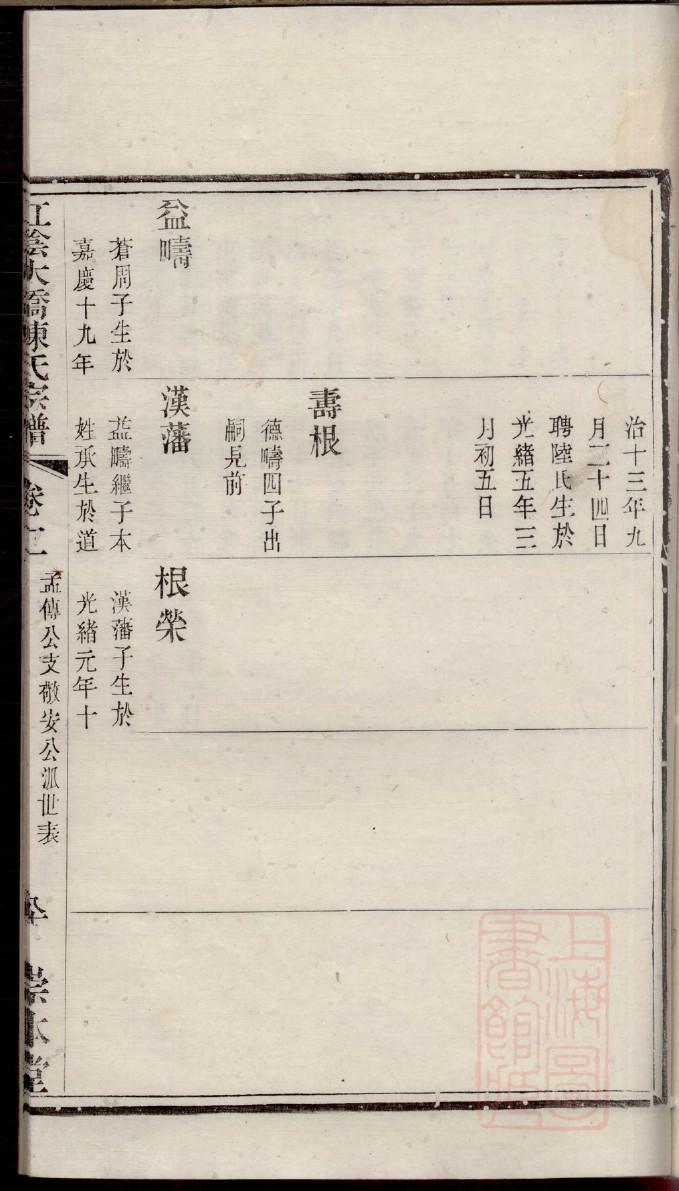 治十三年九
月二十四日
聘陸氏生於
光緒五年三
月初五日
壽根
德疇四子出
嗣見前
益疇
蒼周子生於
嘉慶十九年
漢藩
益疇繼子本
姓承生於道
根榮
漢藩子生於
光緒元年十
江陰大橋陳氏宗譜
孟傳公支敬安公派世表
崇本堂
上海圖
書館藏